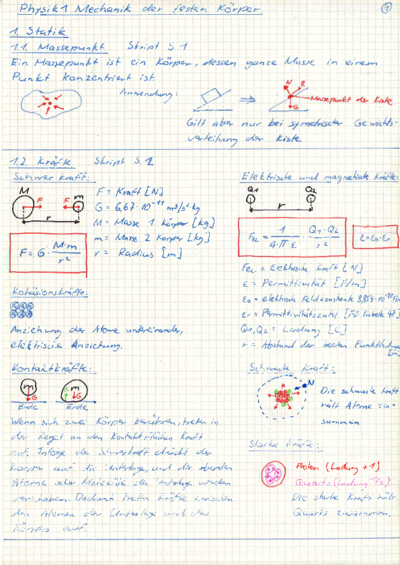 Physik 1 Mechanik der festen Körper
1
1. Statik
1.1. Massepunkt Skript S. 1
Ein Massepunkt ist ein Körper, dessen ganze Masse in einem
Punkt konzentriert ist
Anwendung:
N
R
G
Massepunkt der Kiste
Gilt aber nur bei symetrischer Gewichts-
verteilung der Kiste.
1.2 Kräfte Skript S. 2
Schwerkraft:
M
F
F
m
r
F = G · M·m / r²
F = Kraft [N]
G = 6,67·10⁻¹¹ m³/s²kg
M = Masse 1 Körper [kg]
m = Masse 2 Körper [kg]
r = Radius [m]
Kohäsionskräfte:
Anziehung der Atome untereinander,
elektrische Anziehung.
Kontaktkräfte:
m
G
m
G
Erde
Erde
Wenn sich zwei Körper berühren, treten in
der Regel an den Kontaktflächen Kraft
auf. Infolge der Schwerkraft drückt der
Körper auf die Unterlage, und die obersten
Atome oder Moleküle der Unterlage werden
verschoben. Dadurch treten Kräfte zwischen
den Atomen der Unterlage und des
Körpers auf.
Elektrische und magnetische Kräfte:
Q1
Q2
r
F_EL = 1 / 4·π·ε · Q1·Q2 / r²
ε=ε0·εr
F_EL = Elektrische Kraft [N]
ε = Permittivität [F/m]
ε0 = elektrische Feldkonstante
εr = Permittivitätszahl
Q1, Q2 = Ladung [C]
r = Abstand der beiden
Schwache Kraft:
N
Die schwache Kraft
hält Atome zu-
sammen
Starke Kräfte:
Proton (Ladung +1)
Quarks (Ladung
Die starke Kraft hält
Quarks zusammen.